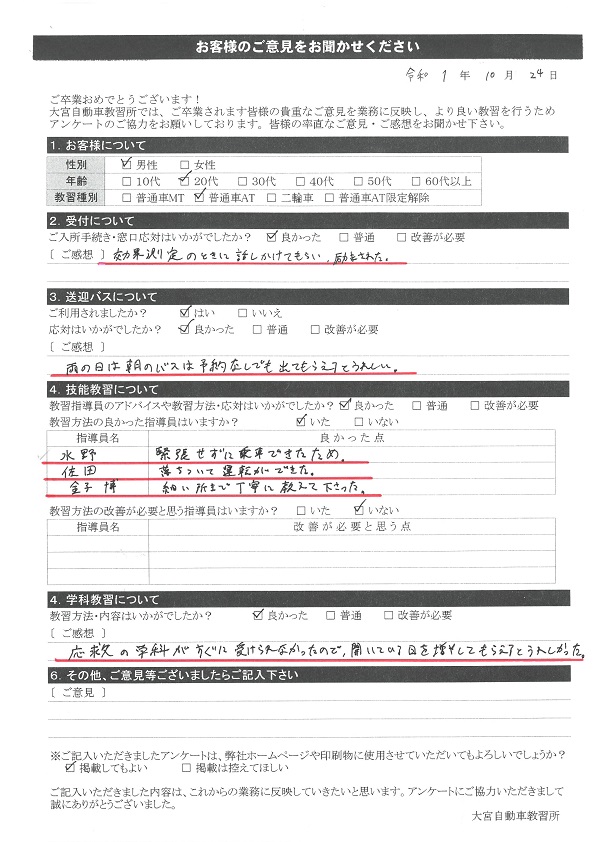 お客様のご意見をお聞かせください
令和 1 年 10 月 24 日
ご卒業おめでとうございます！
大宮自動車教習所では、ご卒業されます皆様の貴重なご意見を業務に反映し、より良い教習を行うため
アンケートのご協力をお願いしております。皆様の率直なご意見・ご感想をお聞かせ下さい。
1. お客様について
性別 ☑男性 □女性
年齢 □10代 ☑20代 □30代 □40代 □50代 □60代以上
教習種別 □普通車MT ☑普通車AT □二輪車 □普通車AT限定解除
2. 受付について
ご入所手続き・窓口応対はいかがでしたか？ ☑良かった □普通 □改善が必要
[ ご感想 ] 効果測定のときに話しかけてもらい、励まされた。
3. 送迎バスについて
ご利用されましたか？ ☑はい □いいえ
応対はいかがでしたか？ ☑良かった □普通 □改善が必要
[ ご感想 ]
雨の日は朝のバスは予約なしでも出てもらえてうれしい。
4. 技能教習について
教習指導員のアドバイスや教習方法・応対はいかがでしたか？ ☑良かった □普通 □改善が必要
教習方法の良かった指導員はいますか？ ☑いた □いない
指導員名 良かった点
水野 緊張せずに乗車できたため。
佐田 落ちついて運転ができた。
金子 博 細い所まで丁寧に教えて下さった。
教習方法の改善が必要と思う指導員はいますか？ □いた ☑いない
指導員名 改善が必要と思う点
4. 学科教習について
教習方法・内容はいかがでしたか？ ☑良かった □普通 □改善が必要
[ ご感想 ]
応救の学科がすぐに受けられなかったので、開いている日を増やしてもらえてうれしかった。
6. その他、ご意見等ございましたらご記入下さい
[ ご意見 ]
※ご記入いただきましたアンケートは、弊社ホームページや印刷物に使用させていただいてもよろしいでしょうか？
☑掲載してもよい □掲載は控えてほしい
ご記入いただきました内容は、これからの業務に反映していきたいと思います。アンケートにご協力いただきまして
誠にありがとうございました。
大宮自動車教習所